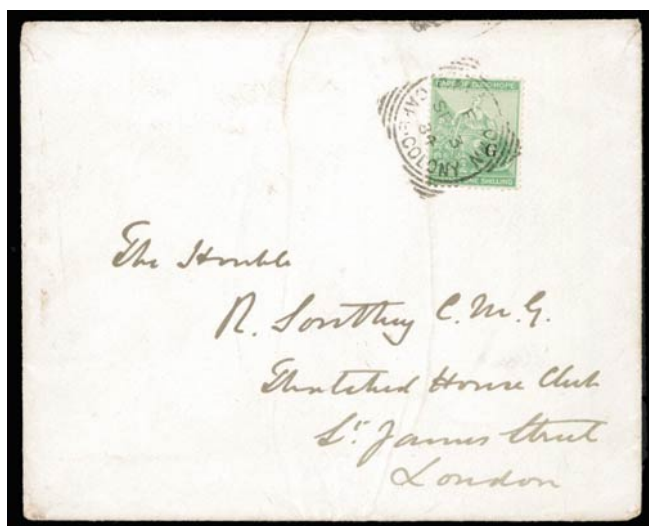 CAPE OF GOOD HOPE
G
SHILLING
CAPE TOWN
SP 3
CAPE-COLONY
The Honble
R. Southey C.M.G.
Thatched House Club
St. James Street
London